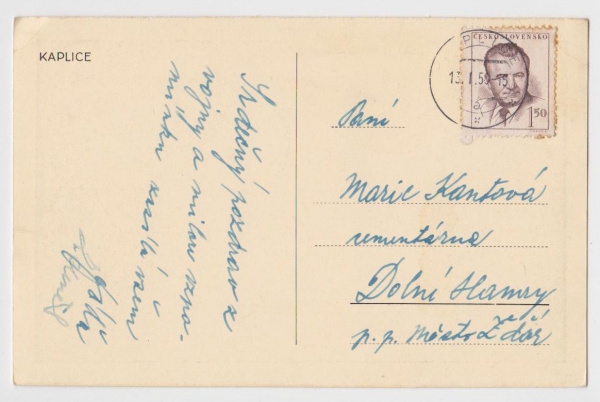 KAPLICE
Srdečný pozdrav z
vojny a milou vzpo-
mínku zasílá vám
ČESKOSLOVENSKO
13. 1. 5
1.50
Paní
Marie Kantová
cementárna
Dolní Hamry
p. p. Město Žďár